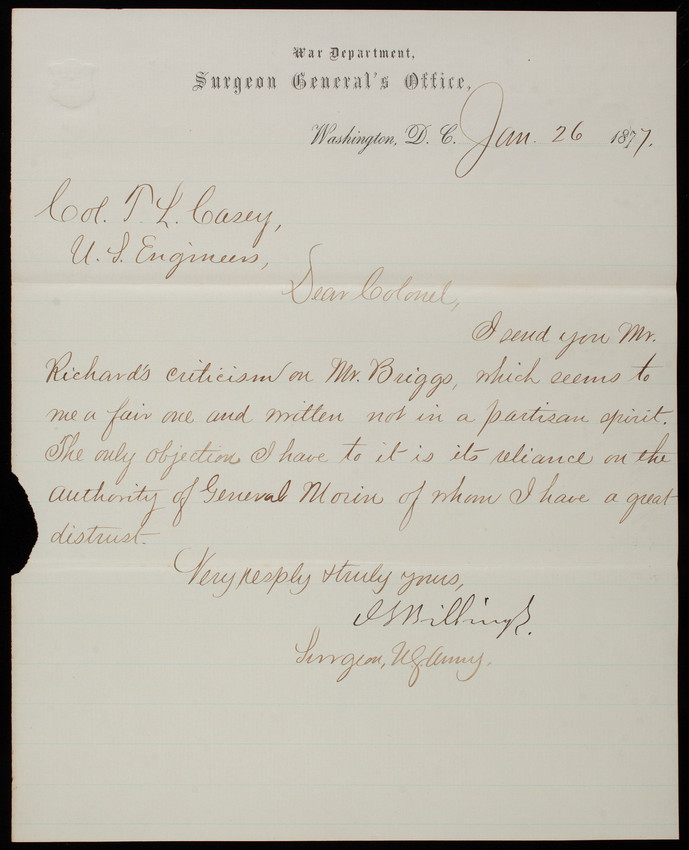 War Department,
Surgeon General's Office,
Washington, D. C. Jan. 26 1877.
Col. T. L. Casey,
U. S. Engineers,
Dear Colonel,
I send you Mr.
Richard's criticism on Mr. Briggs, which seems to
me a fair one and written not in a partisan spirit.
The only objection I have to it is its reliance on the
authority of General Morin of whom I have a great
distrust.
Very resply & truly yours,
J S Billings.
Surgeon, U.S. Army.